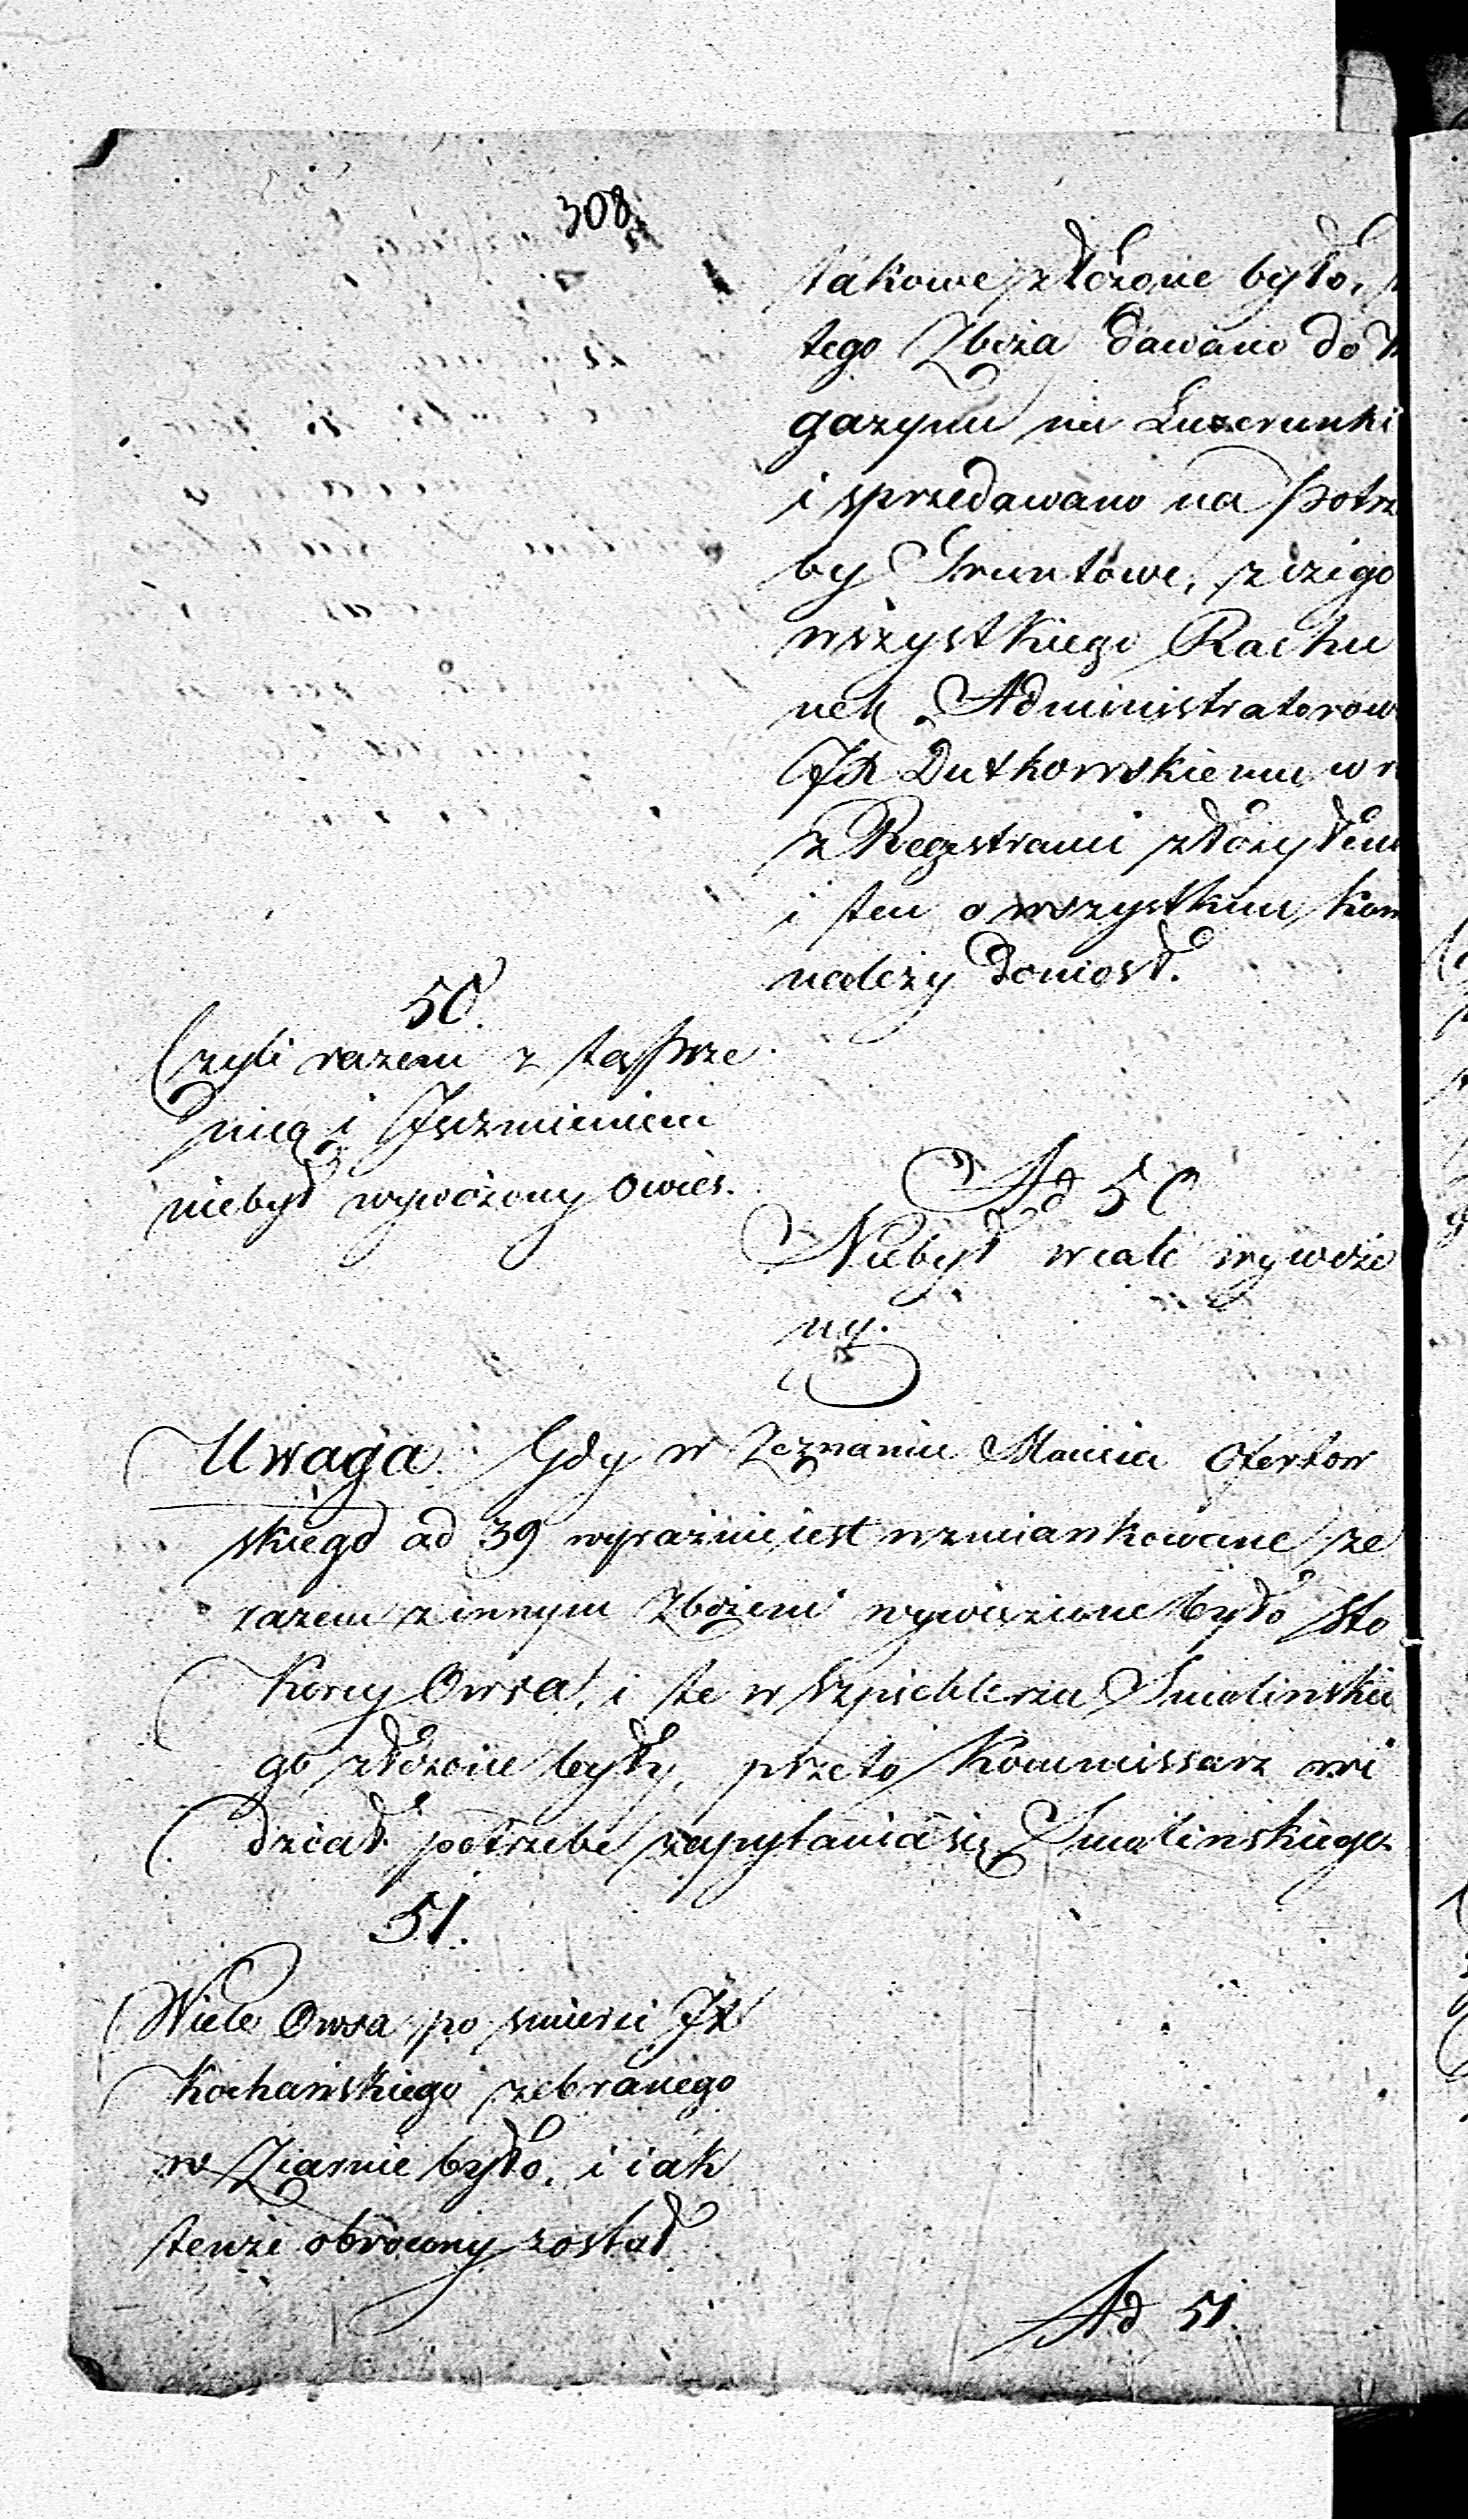 308
takowe złożone było,
tego Zboża dawano do
gazynu na Liwerunki
i sprzedawano na potrz
by Gruntowe, z czego
wszystkiego Rachu
nek Administratorow
JX Dutkowskiemu w
z Regestrami złożyłem
i ten o wszystkim kom
należy doniosł.
50.
Czyli razem z tą Psze
nicą i Jęczmieniem
niebył wywożony Owies.
Ad 50
Niebył wcale wywoże
ny.
Uwaga. Gdy w Zeznaniu Macieia
skiego ad 39 wyraźnie iest wzmiankowane że
razem z innym Zbożem wywiezione było sto
Korcy Owsa, i te w Szpichlerzu Smolinskie
go złożone były, przeto Kommissarz wi
dział potrzebe zapytania się Smolinskiego
51.
Wiele Owsa po smierci JX
Kochańskiego zebranego
w Ziarnie było, i iak
tenże obrocony został
Ad 51.